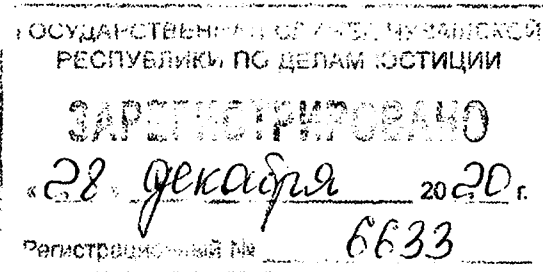 ГОСУДАРСТВЕННАЯ СЛУЖБА ЧУВАШСКОЙ
РЕСПУБЛИКИ ПО ДЕЛАМ ЮСТИЦИИ
ЗАРЕГИСТРИРОВАНО
«28» декабря 2020 г.
Регистрационный № 6633